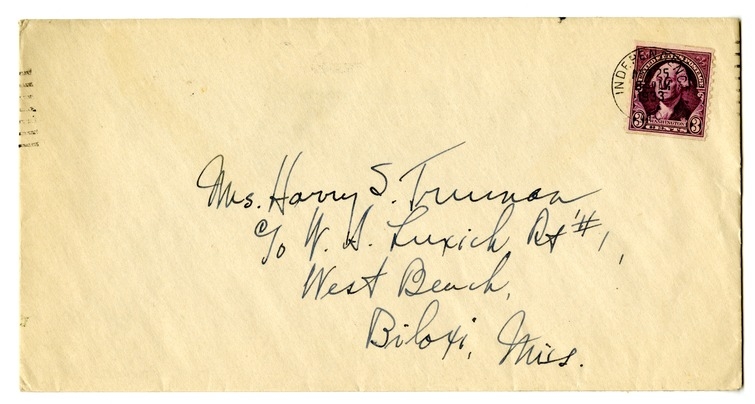 INDEPEN
25
UNITED STATES POSTAGE
3 WASHINGTON 3
CENTS
Mrs. Harry S. Truman
c/o W. A. Luxich Rt #1,
West Beach,
Biloxi, Miss.